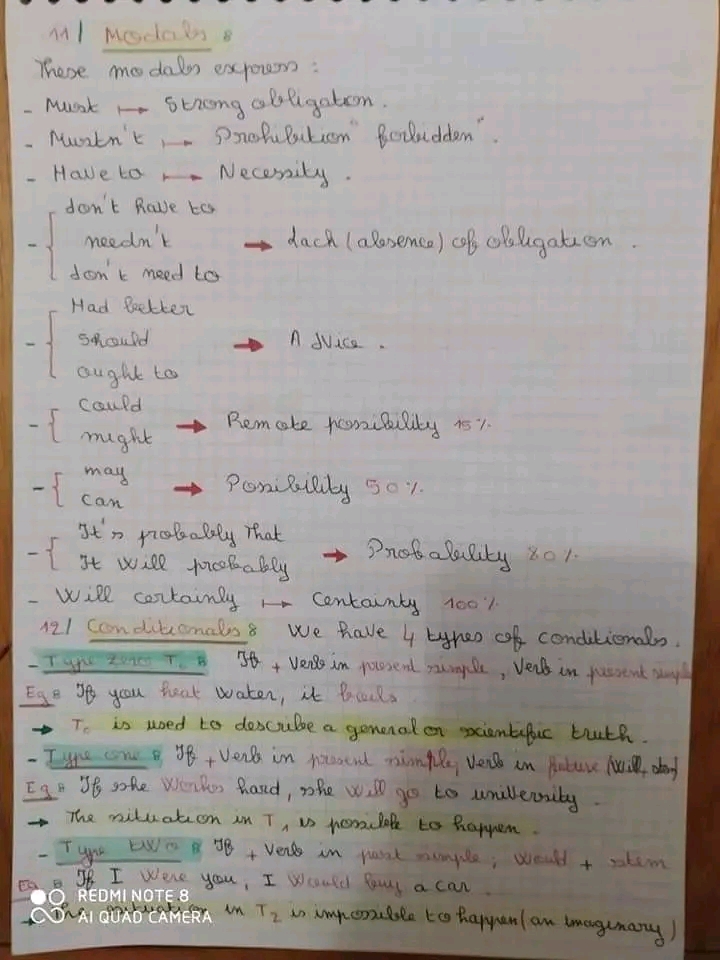 11/ Modals :
These modals express :
- Must → Strong obligation.
- Mustn't → Prohibition "forbidden".
- Have to → Necessity.
don't have to
- needn't → Lack (absence) of obligation.
don't need to
Had better
- should → Advice.
ought to
- could
might → Remote possibility 15%
- may
can → Possibility 50%
- It's probably that
It will probably → Probability 80%
- Will certainly → Certainty 100%
12/ Conditionals : We have 4 types of conditionals.
- Type zero T0 : If + Verb in present simple, Verb in present simple
Eg : If you heat water, it boils.
→ T0 is used to describe a general or scientific truth.
- Type one : If + Verb in present simple, Verb in future (will + stem)
Eg : If she works hard, she will go to university.
→ The situation in T1 is possible to happen.
- Type two : If + Verb in past simple, would + stem
Eg : If I were you, I would buy a car.
→ The situation in T2 is impossible to happen (an imaginary)
REDMI NOTE 8
AI QUAD CAMERA